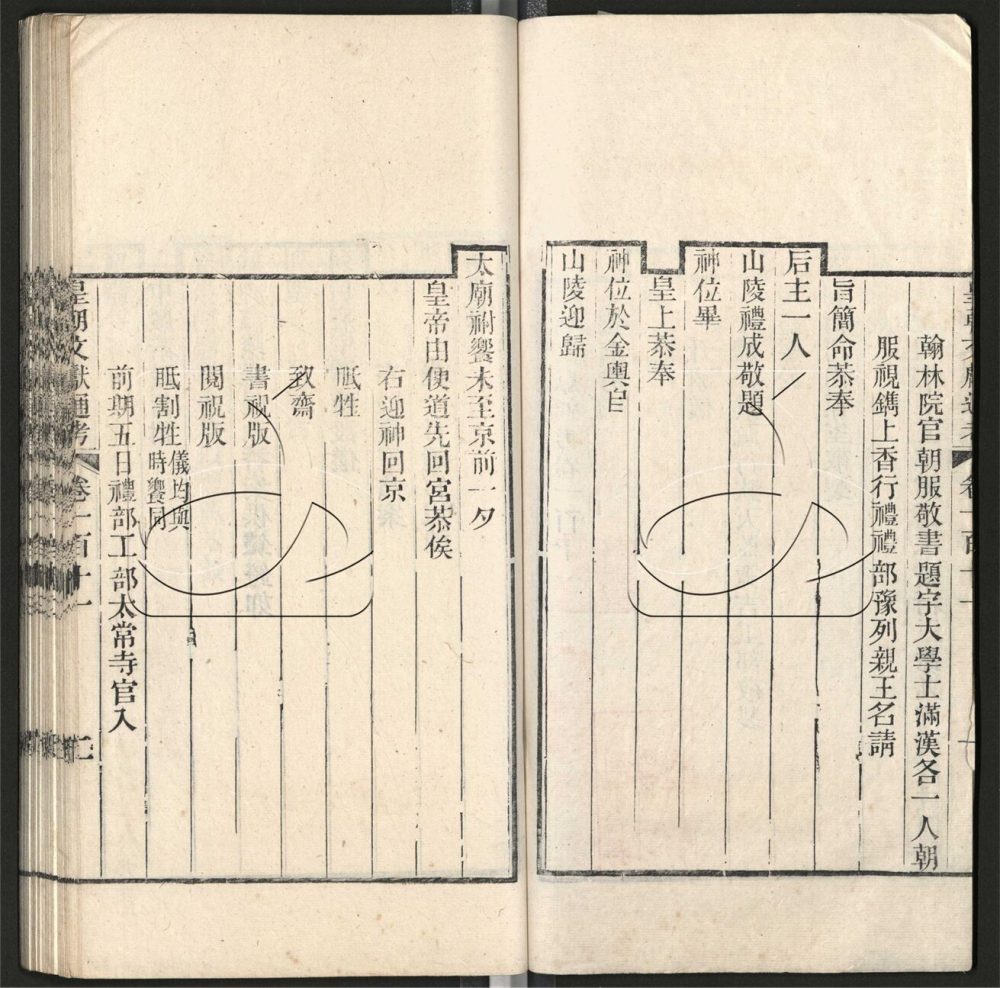 翰林院官朝服敬書題字大學士滿漢各一人朝
服視鐫上香行禮禮部豫列親王名請
旨簡命恭奉
后主一人
山陵禮成敬題
神位畢
皇上恭奉
神位於金輿自
山陵迎歸
太廟祔饗未至京前一夕
皇帝由便道先回宮恭俟
右迎神回京
眡牲
致齋
書祝版
閱祝版
眡割牲儀均與
時饗同
前期五日禮部工部太常寺官入
皇朝文獻通考 卷一百十一 二